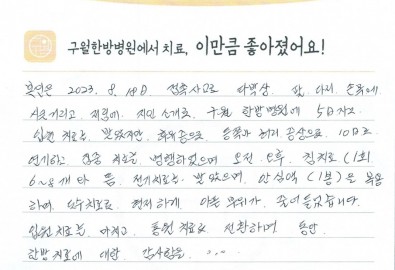 구월한방병원에서 치료, 이만큼 좋아졌어요!
본인은 2023. 8. 18日 접촉사고로 타박상, 팔, 다리, 손목에
시큰거리고, 저림에, 지인 소개로, 구월 한방병원에 5日자로
입원 치료를 받았지만, 후유증으로 등목과 허리 통상으로, 10日로
연기하고, 집중 치료를 병행하였으며 오전, 오후, 침치료 (1회
6~8개 타 등, 전기치료를 받았으며, 안심액 (1봉)을 복용
하며, 도수치료로 현저하게 아픈 부위가 줄어들었습니다.
입원치료를 마치고, 통원 치료로 전환하며 동안
한방치료에 대한 감사함을 ...